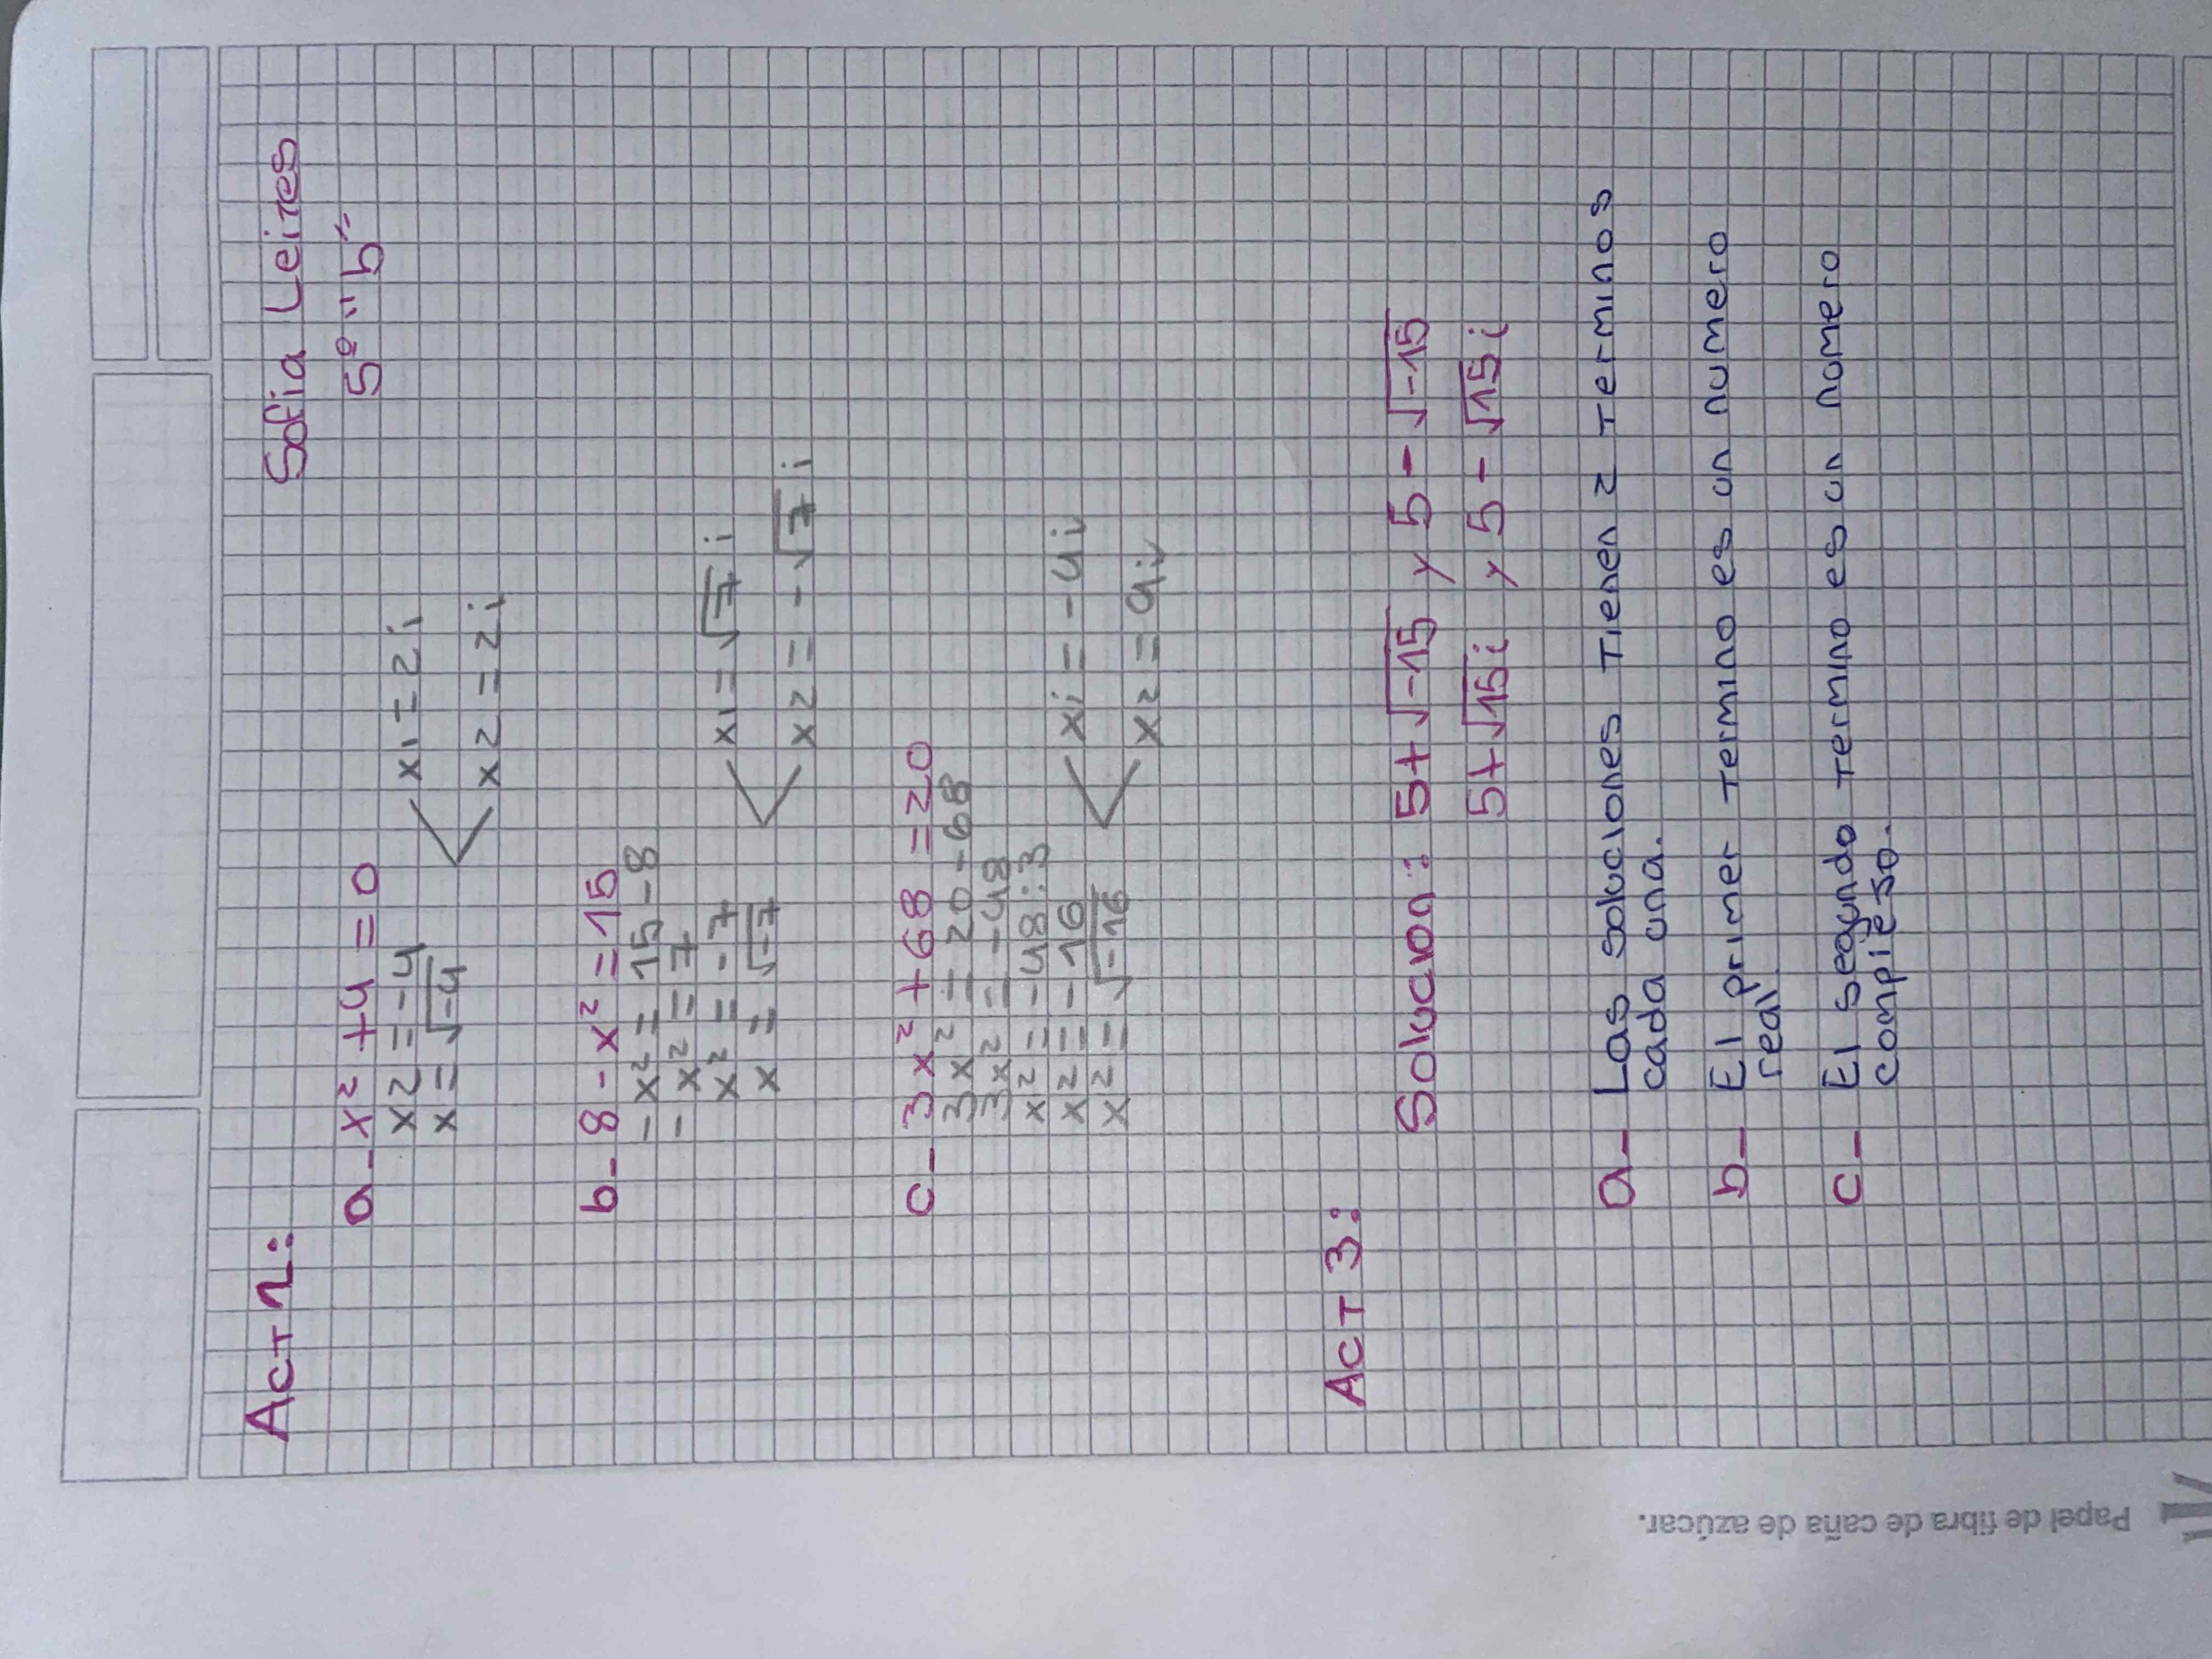 Sofia Leites
5º "b"
Act 2:
a- x² + 4 = 0
x2 = -4
x = √-4
x1 = 2i
x2 = 2i
b- 8 - x² = 15
-x² = 15 - 8
-x² = 7
x² = -7
x = √-7
x1 = √7 i
x2 = -√7 i
c- 3x² + 68 = 20
3x² = 20 - 68
3x² = -48
x² = -48:3
x2 = -16
x2 = √-16
xi = -4i
x2 = 4i
Act 3:
Solucion: 5+√-15 y 5-√-15
5+√15i y 5-√15i
a- Las soluciones tienen 2 terminos
cada una.
b- El primer termino es un numero
real
c- El segundo termino es un numero
compleso.
Papel de fibra de caña de azúcar.